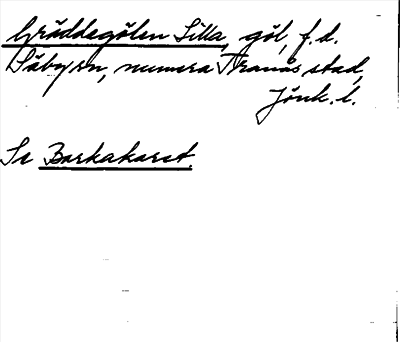 Gräddegölen Lilla, göl, f.d.
Säby sn, numera Tranås stad,
Jönk. l.
Se Barkakarst.